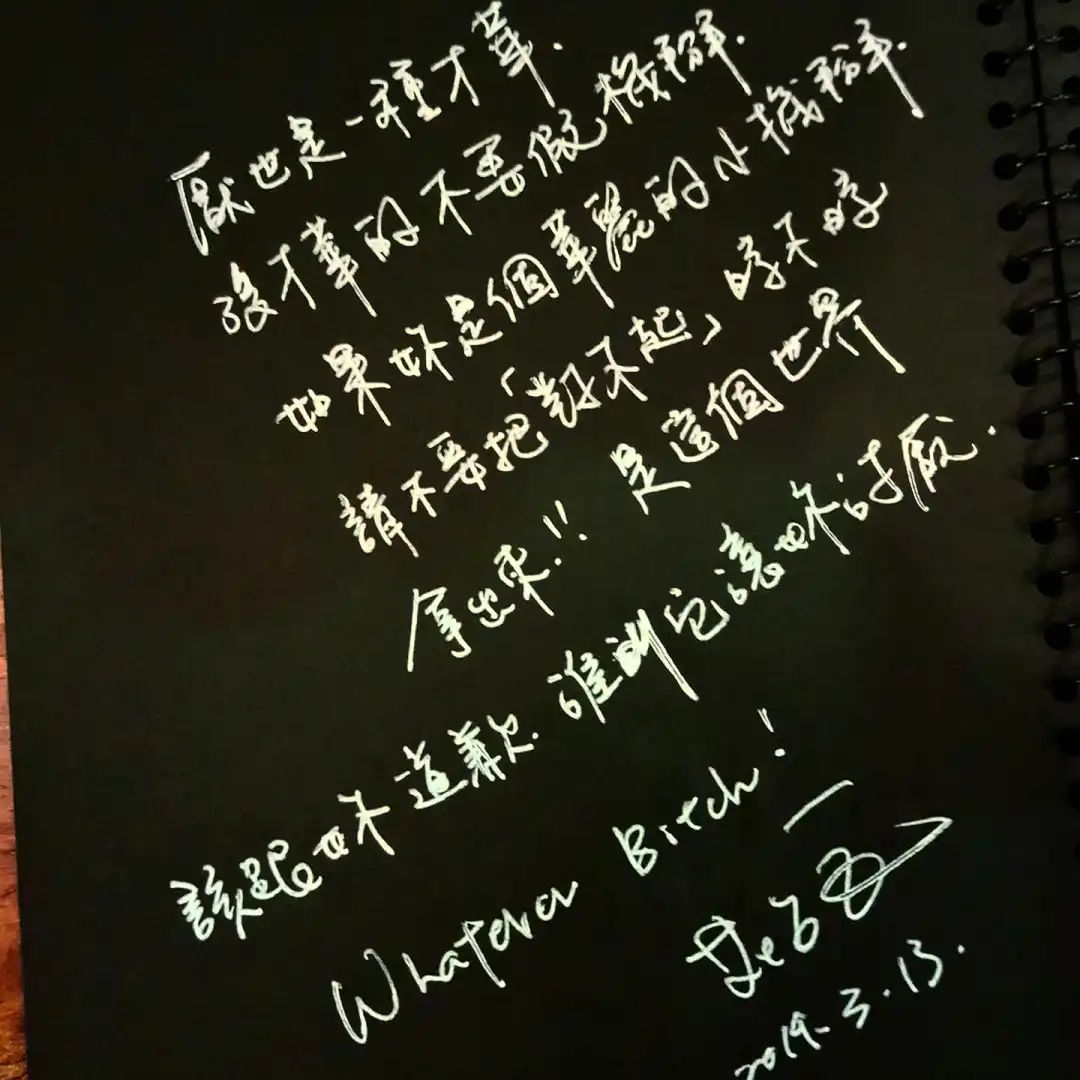 厭世是一種才華.
沒才華的不要假機掰.
如果妳是個華麗的小機掰.
請不要把「對不起」哼不哼
拿出來!! 是這個世界
該跟妳道歉. 誰叫它讓妳討厭.
Whatever Bitch!
2019.3.13.